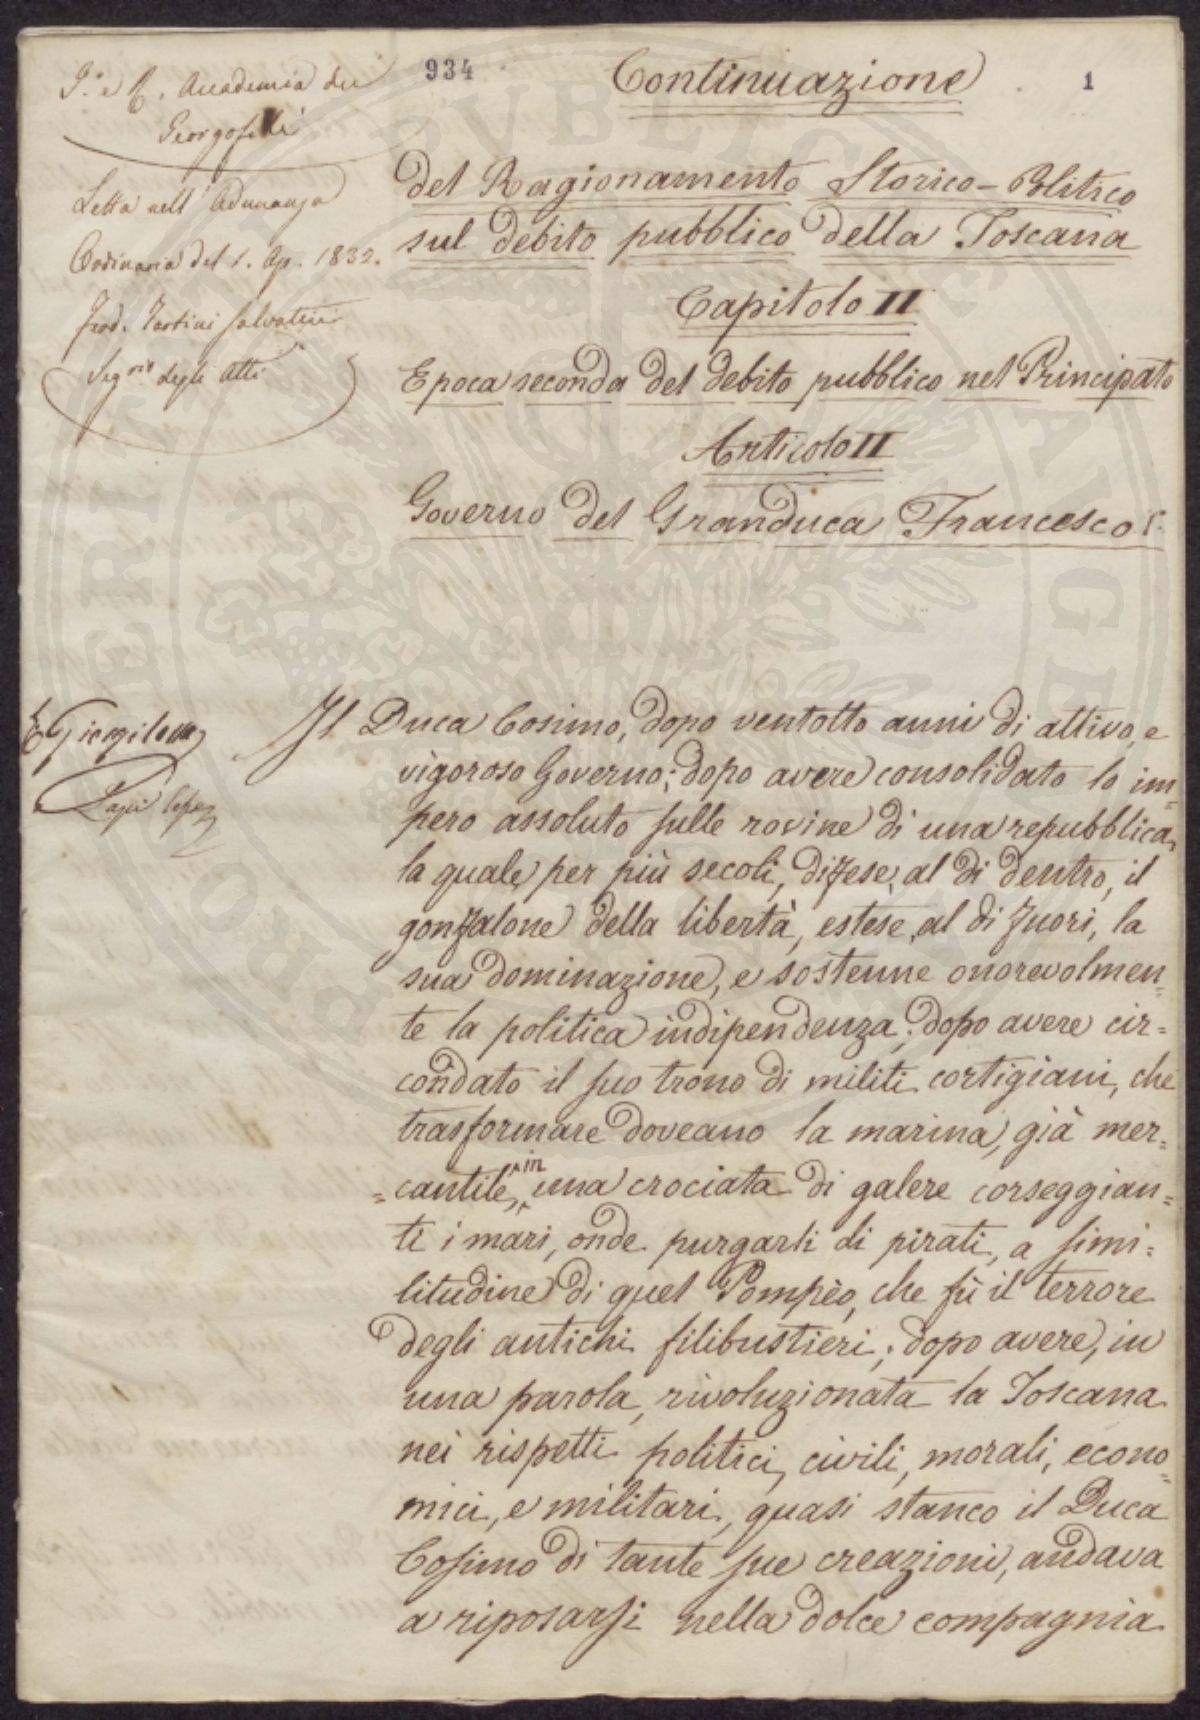 934
1
I. e R. Accademia dei
Georgofili
Letta nell'Adunanza
Ordinaria del 1. Ap. 1832.
Ferd. Tartini Salvatici
Seg.rio degli Atti
Continuazione
del Ragionamento Storico-Politico
sul debito pubblico della Toscana
Capitolo II
Epoca seconda del debito pubblico nel Principato
Articolo II
Governo del Granduca Francesco I.
Il Duca Cosimo, dopo ventotto anni di attivo, e
vigoroso Governo; dopo avere consolidato lo im=
pero assoluto sulle rovine di una repubblica,
la quale, per più secoli, difese, al di dentro, il
gonfalone della libertà, estese, al di fuori, la
sua dominazione, e sostenne onorevolmen=
te la politica indipendenza; dopo avere cir=
condato il suo trono di militi cortigiani, che
trasformare doveano la marina, già mer=
=cantile, in una crociata di galere corseggian=
ti i mari, onde purgarli di pirati, a simi=
litudine di quel Pompèo, che fù il terrore
degli antichi filibustieri; dopo avere, in
una parola, rivoluzionata la Toscana
nei rispetti politici, civili, morali, econo=
mici, e militari, quasi stanco il Duca
Cosimo di tante sue creazioni, andava
a riposarsi nella dolce compagnia